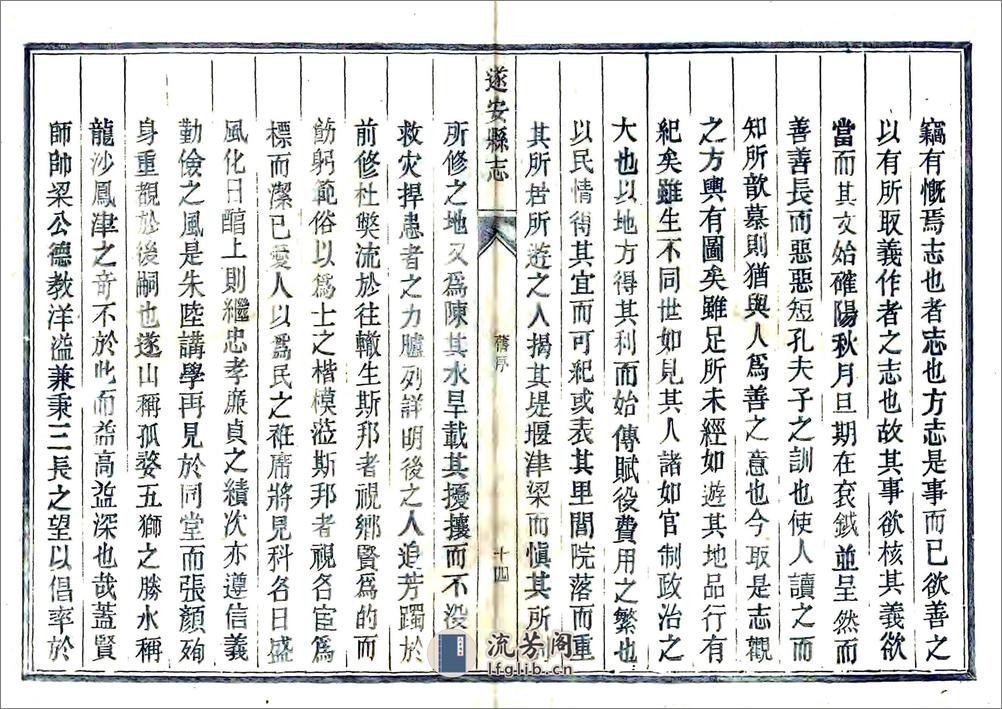 竊有慨焉志也者志也方志是事而已欲善之
以有所取義作者之志也故其事欲核其義欲
當而其文始確陽秋月旦期在袞鉞並呈然而
善善長而惡惡短孔夫子之訓也使人讀之而
知所歆慕則猶與人爲善之意也今取是志觀
之方輿有圖矣雖足所未經如遊其地品行有
紀矣雖生不同世如見其人諸如官制政治之
大也以地方得其利而始傳賦役費用之繁也
以民情得其宜而可紀或表其里閭院落而重
其所居所遊之人揭其堤堰津梁而愼其所
遂安縣志
舊序
十四
所修之地又爲陳其水旱載其擾攘而不没
救灾捍患者之力臚列詳明後之人追芳躅於
前修杜獘流於往轍生斯邦者視鄉賢爲的而
飭躬範俗以爲士之楷模蒞斯邦者視名宦爲
標而潔已愛人以爲民之袵席將見科名日盛
風化日醇上則繼忠孝廉貞之績次亦遵信義
勤儉之風是朱陸講學再見於同堂而張顏殉
身重觀於後嗣也遂山稱孤婺五獅之勝水稱
龍沙鳳津之奇不於此而益高益深也哉蓋賢
師帥梁公德教洋溢兼秉三長之望以倡率於
流芳阁
lfglib.cn